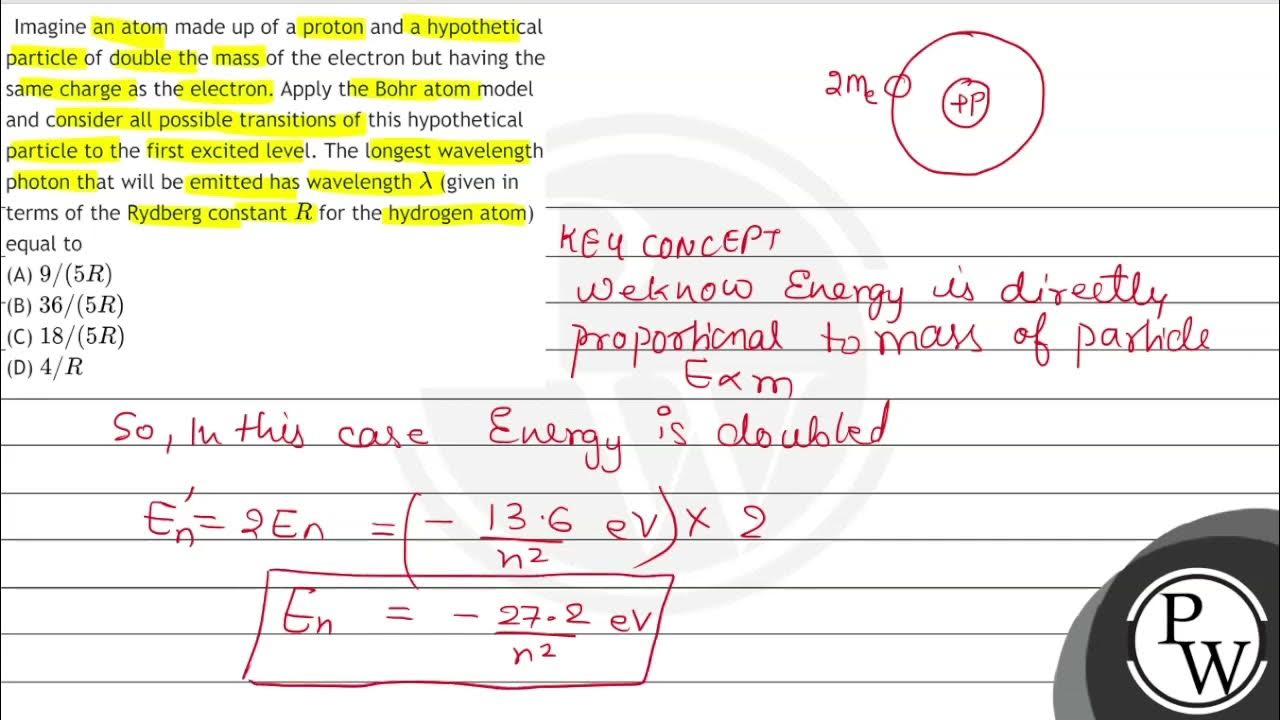 Imagine an atom made up of a proton and a hypothetical
particle of double the mass of the electron but having the
same charge as the electron. Apply the Bohr atom model
and consider all possible transitions of this hypothetical
particle to the first excited level. The longest wavelength
photon that will be emitted has wavelength λ (given in
terms of the Rydberg constant R for the hydrogen atom)
equal to
(A) 9/(5R)
(B) 36/(5R)
(C) 18/(5R)
(D) 4/R
2me
+P
KEY CONCEPT
We know Energy is directly
proportional to mass of particle
E∝m
So, In this case Energy is doubled
En' = 2En = (- 13.6/n² eV) × 2
En = - 27.2/n² eV
P
W